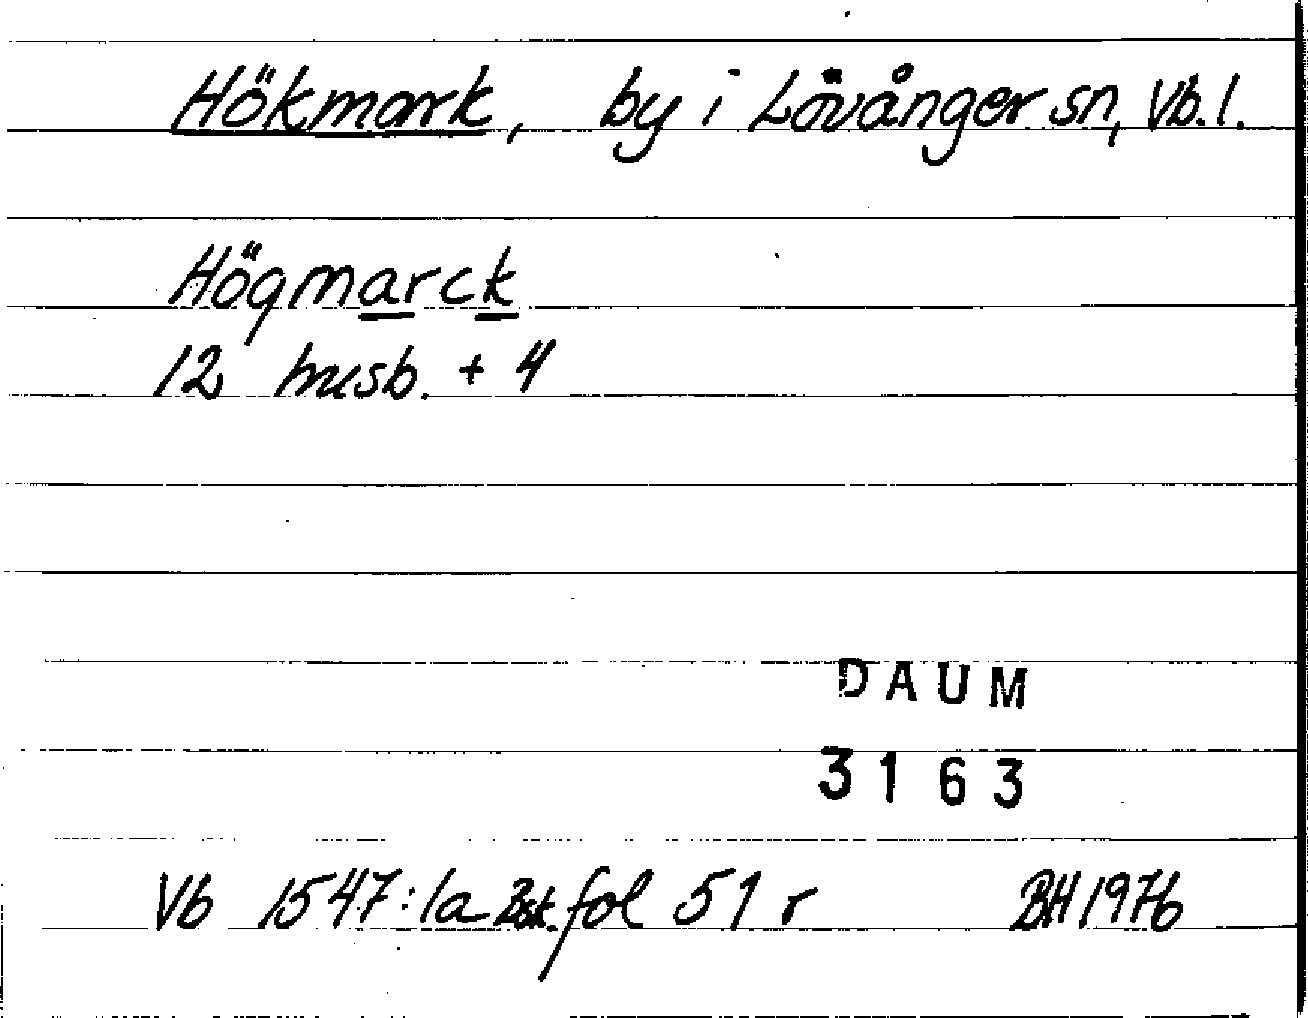 Hökmark, by i Lövånger sn, Vb. l.
Högmarck
12 husb. + 4
DAUM
3163
Vb 1547:1a Bsk. fol 51 r BH 1976